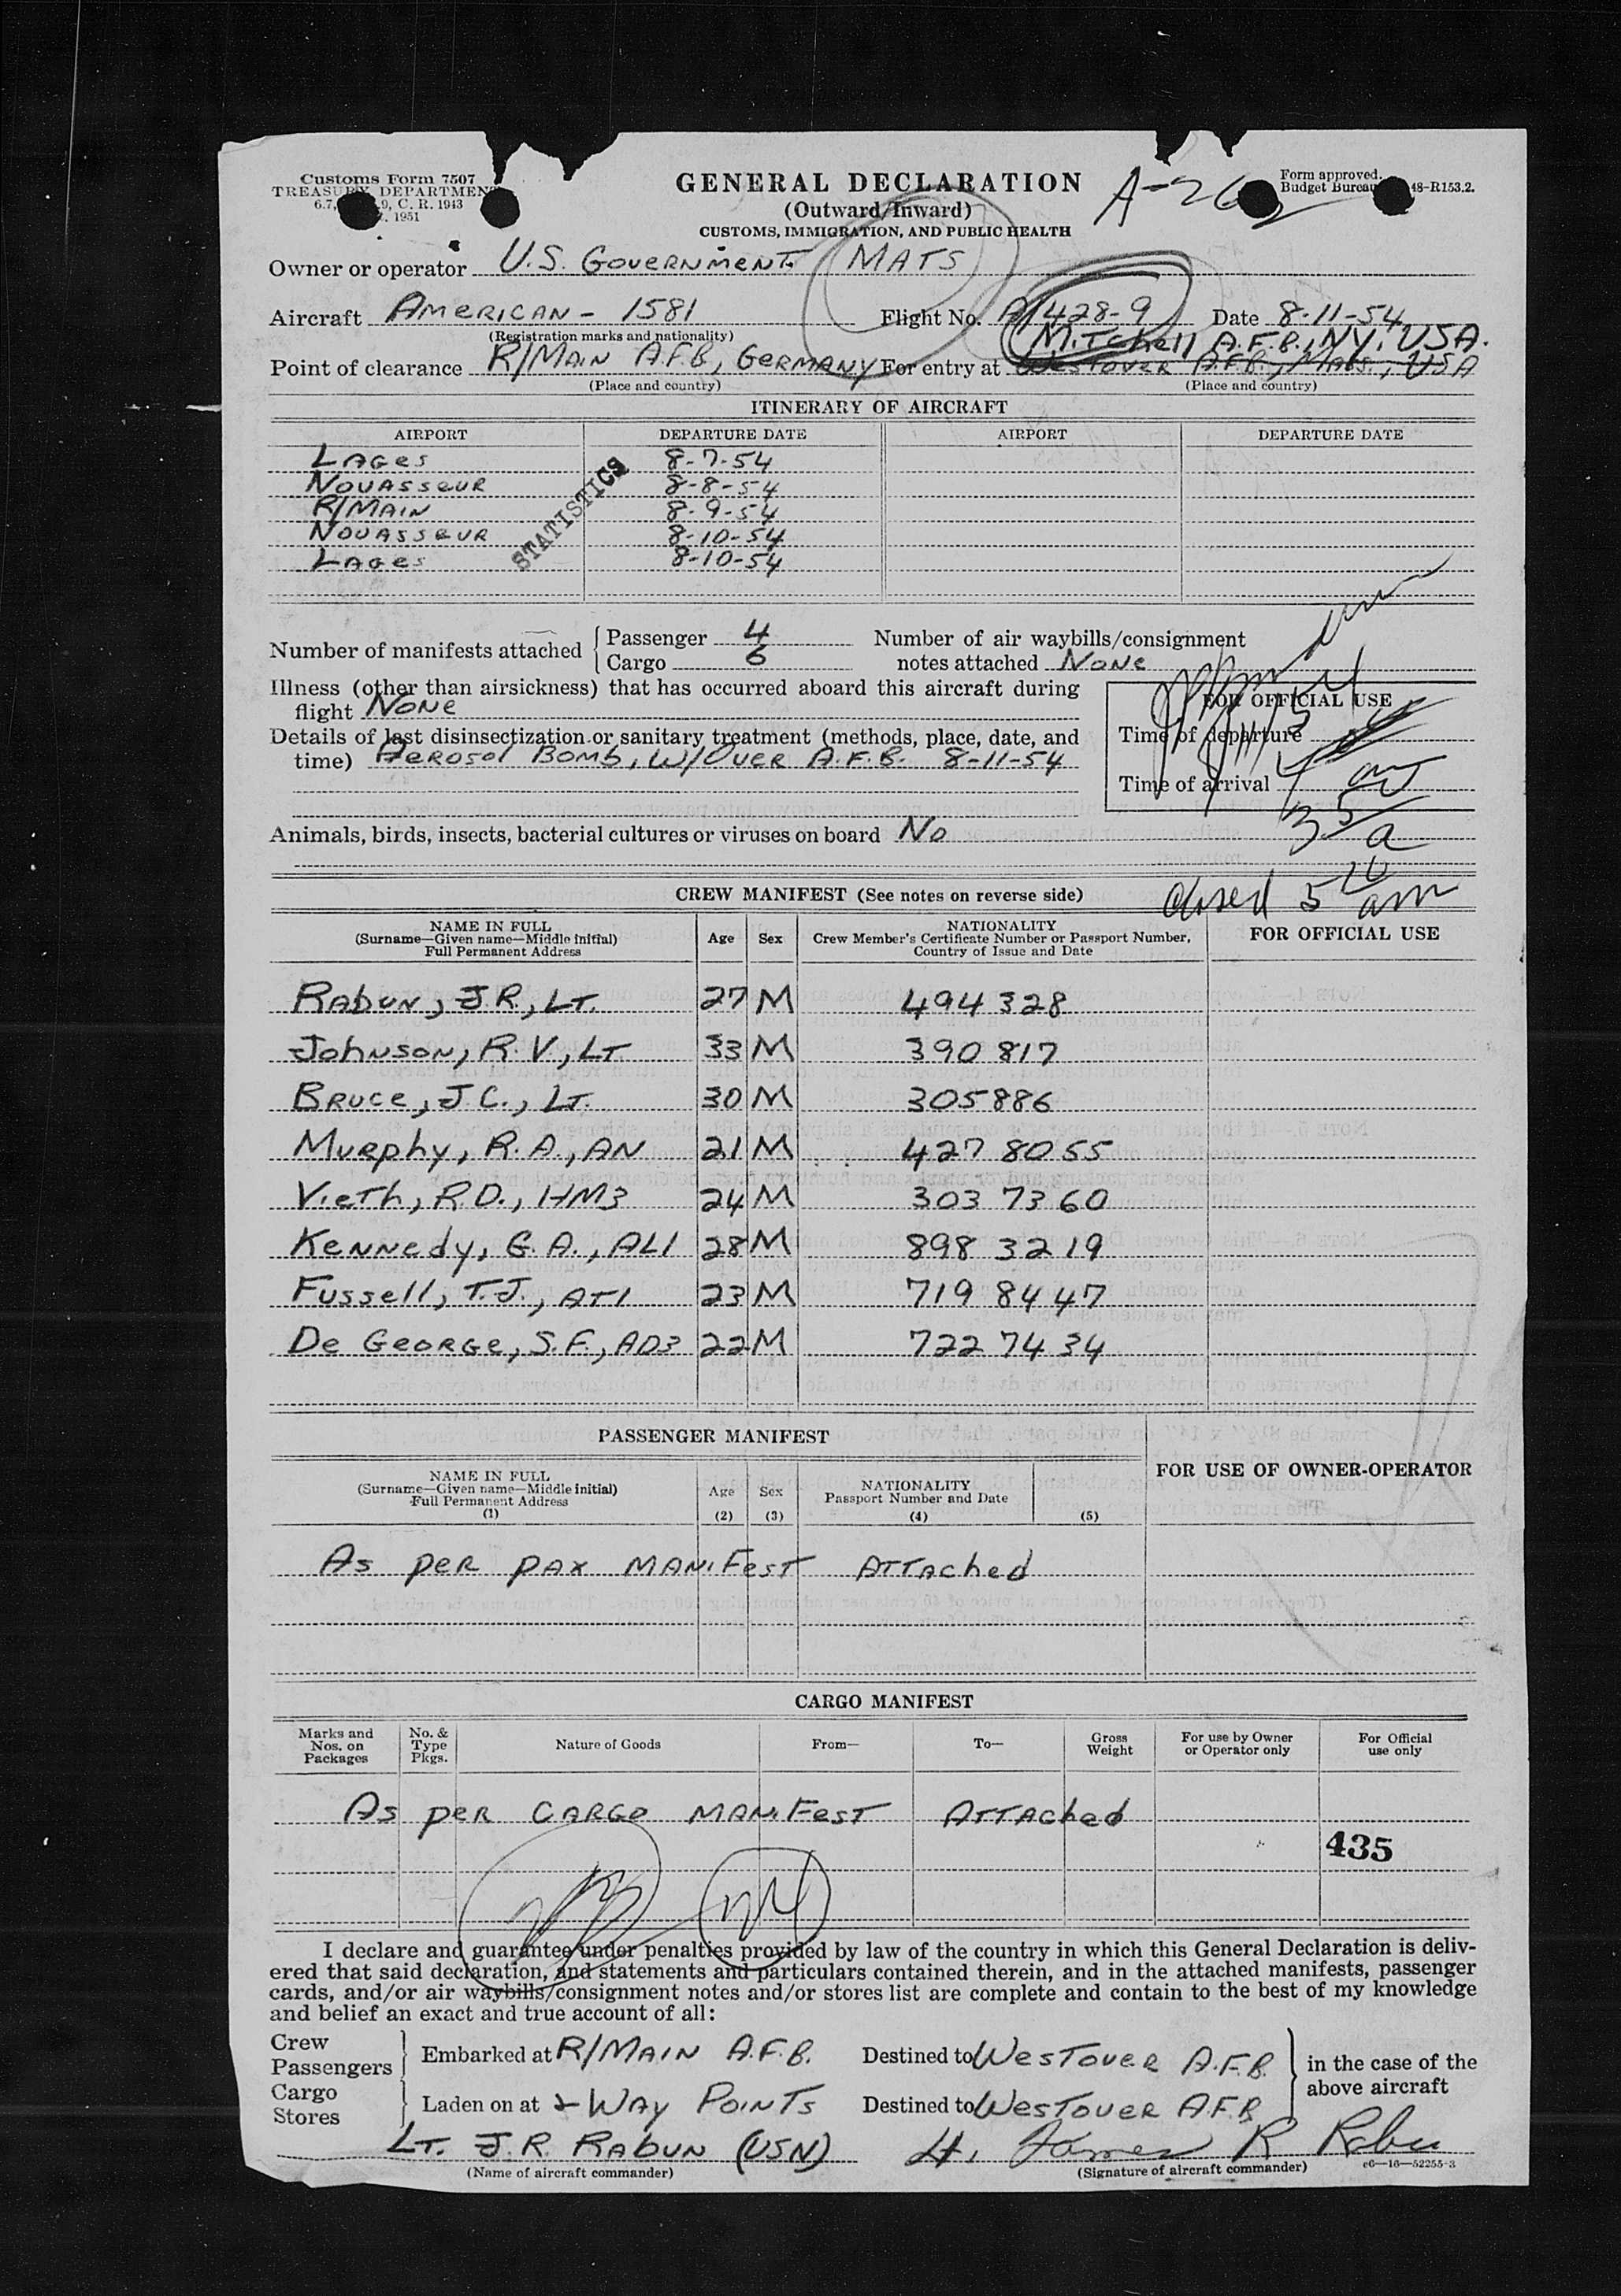 Customs Form 7507
TREASURY DEPARTMENT
6.7, 9, C. R. 1943
1951
GENERAL DECLARATION
(Outward/Inward)
CUSTOMS, IMMIGRATION, AND PUBLIC HEALTH
Form approved.
Budget Bureau 48-R153.2.
Owner or operator U.S. Government MATS
Aircraft American - 1581 Flight No. A/428-9 Date 8-11-54
(Registration marks and nationality)
Mitchell A.F.B., NY. USA.
Point of clearance R/Main A.F.B., Germany For entry at Westover A.F.B., Mass., USA
(Place and country) (Place and country)
ITINERARY OF AIRCRAFT
AIRPORT DEPARTURE DATE AIRPORT DEPARTURE DATE
Lages 8-7-54
Nouasseur 8-8-54
R/Main 8-9-54
Nouasseur 8-10-54
Lages 8-10-54
STATISTICS
Number of manifests attached { Passenger 4 Number of air waybills/consignment
Cargo 6 notes attached None
Illness (other than airsickness) that has occurred aboard this aircraft during
flight None
Details of last disinsectization or sanitary treatment (methods, place, date, and
time) Aerosol Bomb, W/Over A.F.B. 8-11-54
FOR OFFICIAL USE
Time of departure
Time of arrival
Animals, birds, insects, bacterial cultures or viruses on board No
closed 5 10 am
CREW MANIFEST (See notes on reverse side)
NAME IN FULL
(Surname—Given name—Middle initial)
Full Permanent Address
Age Sex
NATIONALITY
Crew Member's Certificate Number or Passport Number,
Country of Issue and Date
FOR OFFICIAL USE
Rabun, J.R., Lt. 27 M 494 328
Johnson, R.V., Lt 33 M 390 817
Bruce, J.C., Lt. 30 M 305886
Murphy, R.A., AN 21 M 427 80 55
Vieth, R.D., HM3 24 M 303 73 60
Kennedy, G.A., AL1 28 M 898 32 19
Fussell, T.J., AT1 23 M 719 84 47
De George, S.F., AD3 22 M 722 74 34
PASSENGER MANIFEST
NAME IN FULL
(Surname—Given name—Middle initial)
Full Permanent Address
(1)
Age
(2)
Sex
(3)
NATIONALITY
Passport Number and Date
(4) (5)
FOR USE OF OWNER-OPERATOR
As per pax manifest attached
CARGO MANIFEST
Marks and
Nos. on
Packages
No. &
Type
Pkgs.
Nature of Goods
From—
To—
Gross
Weight
For use by Owner
or Operator only
For Official
use only
As per cargo manifest attached
435
I declare and guarantee under penalties provided by law of the country in which this General Declaration is deliv-
ered that said declaration, and statements and particulars contained therein, and in the attached manifests, passenger
cards, and/or air waybills/consignment notes and/or stores list are complete and contain to the best of my knowledge
and belief an exact and true account of all:
Crew
Passengers } Embarked at R/Main A.F.B. Destined to Westover A.F.B. } in the case of the
Cargo
above aircraft
Stores } Laden on at & Way Points Destined to Westover AFB
Lt. J.R. Rabun (USN) Lt. James R Rabun
(Name of aircraft commander) (Signature of aircraft commander)
c6—16—52255-3